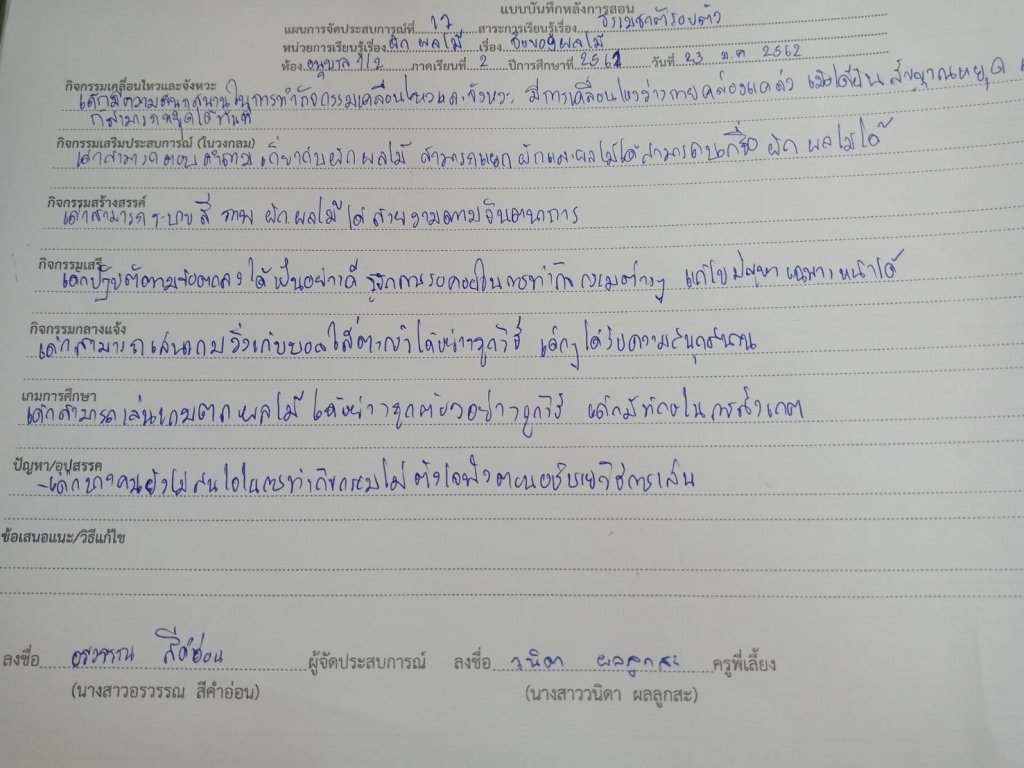 แบบบันทึกหลังการสอน
แผนการจัดประสบการณ์ที่ 17 สาระการเรียนรู้เรื่อง ธรรมชาติรอบตัว
หน่วยการเรียนรู้เรื่อง ผัก ผลไม้ เรื่อง ชื่อของผลไม้
ห้อง อนุบาล 1/2 ภาคเรียนที่ 2 ปีการศึกษาที่ 2561 วันที่ 23 ม.ค 2562
กิจกรรมเคลื่อนไหวและจังหวะ
เด็กมีความสนุกสนานในการทำกิจกรรมเคลื่อนไหวและจังหวะ มีการเคลื่อนไหวร่างกายคล่องแคล่ว เมื่อได้ยินสัญญาณหยุด
ก็สามารถหยุดได้ทันที
กิจกรรมเสริมประสบการณ์ (ในวงกลม)
เด็กสามารถตอบคำถามเกี่ยวกับผักผลไม้ สามารถแยกผักและผลไม้ได้สามารถบอกชื่อ ผัก ผลไม้ได้
กิจกรรมสร้างสรรค์
เด็กสามารถระบายสี ภาพ ผักผลไม้ได้สวยงามตามจินตนาการ
กิจกรรมเสรี
เด็กปฏิบัติตามข้อตกลงได้เป็นอย่างดี รู้จักการรอคอยในการทำกิจกรรมต่างๆ แก้ไขปัญหาเฉพาะหน้าได้
กิจกรรมกลางแจ้ง
เด็กสามารถเล่นเกมวิ่งเก็บบอลใส่ตะกร้าได้อย่างถูกวิธี เด็กๆได้รับความสนุกสนาน
เกมการศึกษา
เด็กสามารถเล่นเกมภาพผลไม้ได้อย่างถูกต้องอย่างถูกวิธี เด็กมีทักษะในการสังเกต
ปัญหา/อุปสรรค
-เด็กบางคนยังไม่สนใจในการทำกิจกรรมไม่ตั้งใจฟังตอนอธิบายวิธีการเล่น
ข้อเสนอแนะ/วิธีแก้ไข
ลงชื่อ อรวรรณ สีคำอ่อน ผู้จัดประสบการณ์ ลงชื่อ วนิดา ผลลูกสะ ครูพี่เลี้ยง
(นางสาวอรวรรณ สีคำอ่อน) (นางสาววนิดา ผลลูกสะ)